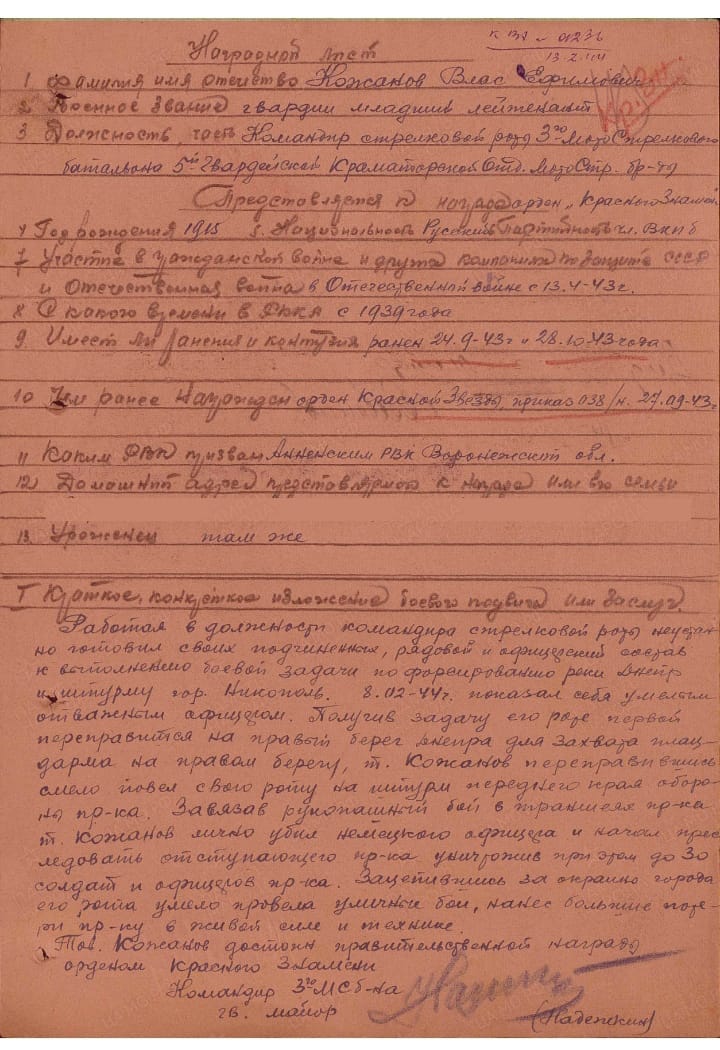 Наградной лист
1 Фамилия имя отчество Кожанов Влас Ефимович
2 Военное звание гвардии младший лейтенант
3 Должность, часть Командир стрелковой роты 3го МотоСтрелкового
батальона 5й Гвардейской Краматорской Отд. МотоСтр. бр-ды
Представляется к награде орден "Красного Знамени
4 Год рождения 1915 5. Национальность Русский Партийность чл. ВКПб
7 Участие в гражданской войне и других кампаниях по защите СССР
и Отечественная война в Отечественной войне с 13.4-43г.
8 С какого времени в РККА с 1939 года
9 Имеет ли ранения и контузия ранен 24.9-43г и 28.10.43 года
10 Чем ранее награжден орден Красной Звезды, приказ 038/н. 27.09-43г.
11 Каким РВК призван Анненским РВК Воронежской обл.
12) Домашний адрес представляемого к награде или его семьи
13. Уроженец там же
I Краткое, конкретное изложение боевого подвига или заслуг.
Работая в должности командира стрелковой роты неустан-
но готовил своих подчиненных, рядовой и офицерский состав
к выполнению боевой задачи по форсированию реки Днепр
и штурму гор. Никополь. 8.02-44г. показал себя умелым
отважным офицером. Получив задачу его роте первой
переправится на правый берег Днепра для захвата плац-
дарма на правом берегу, т. Кожанов переправившись
смело повел свою роту на штурм переднего края оборо-
ны пр-ка. Завязав рукопашный бой в траншеях пр-ка
т. Кожанов лично убил немецкого офицера и начал прес-
ледовать отступающего пр-ка уничтожив при этом до 30
солдат и офицеров пр-ка. Зацепившись за окраину города
его рота умело провела уличный бой, нанес большие поте-
ри пр-ку в живой силе и технике.
Тов. Кожанов достоин правительственной награды
орденом Красного Знамени
Командир 3го МСб-на
гв. майор